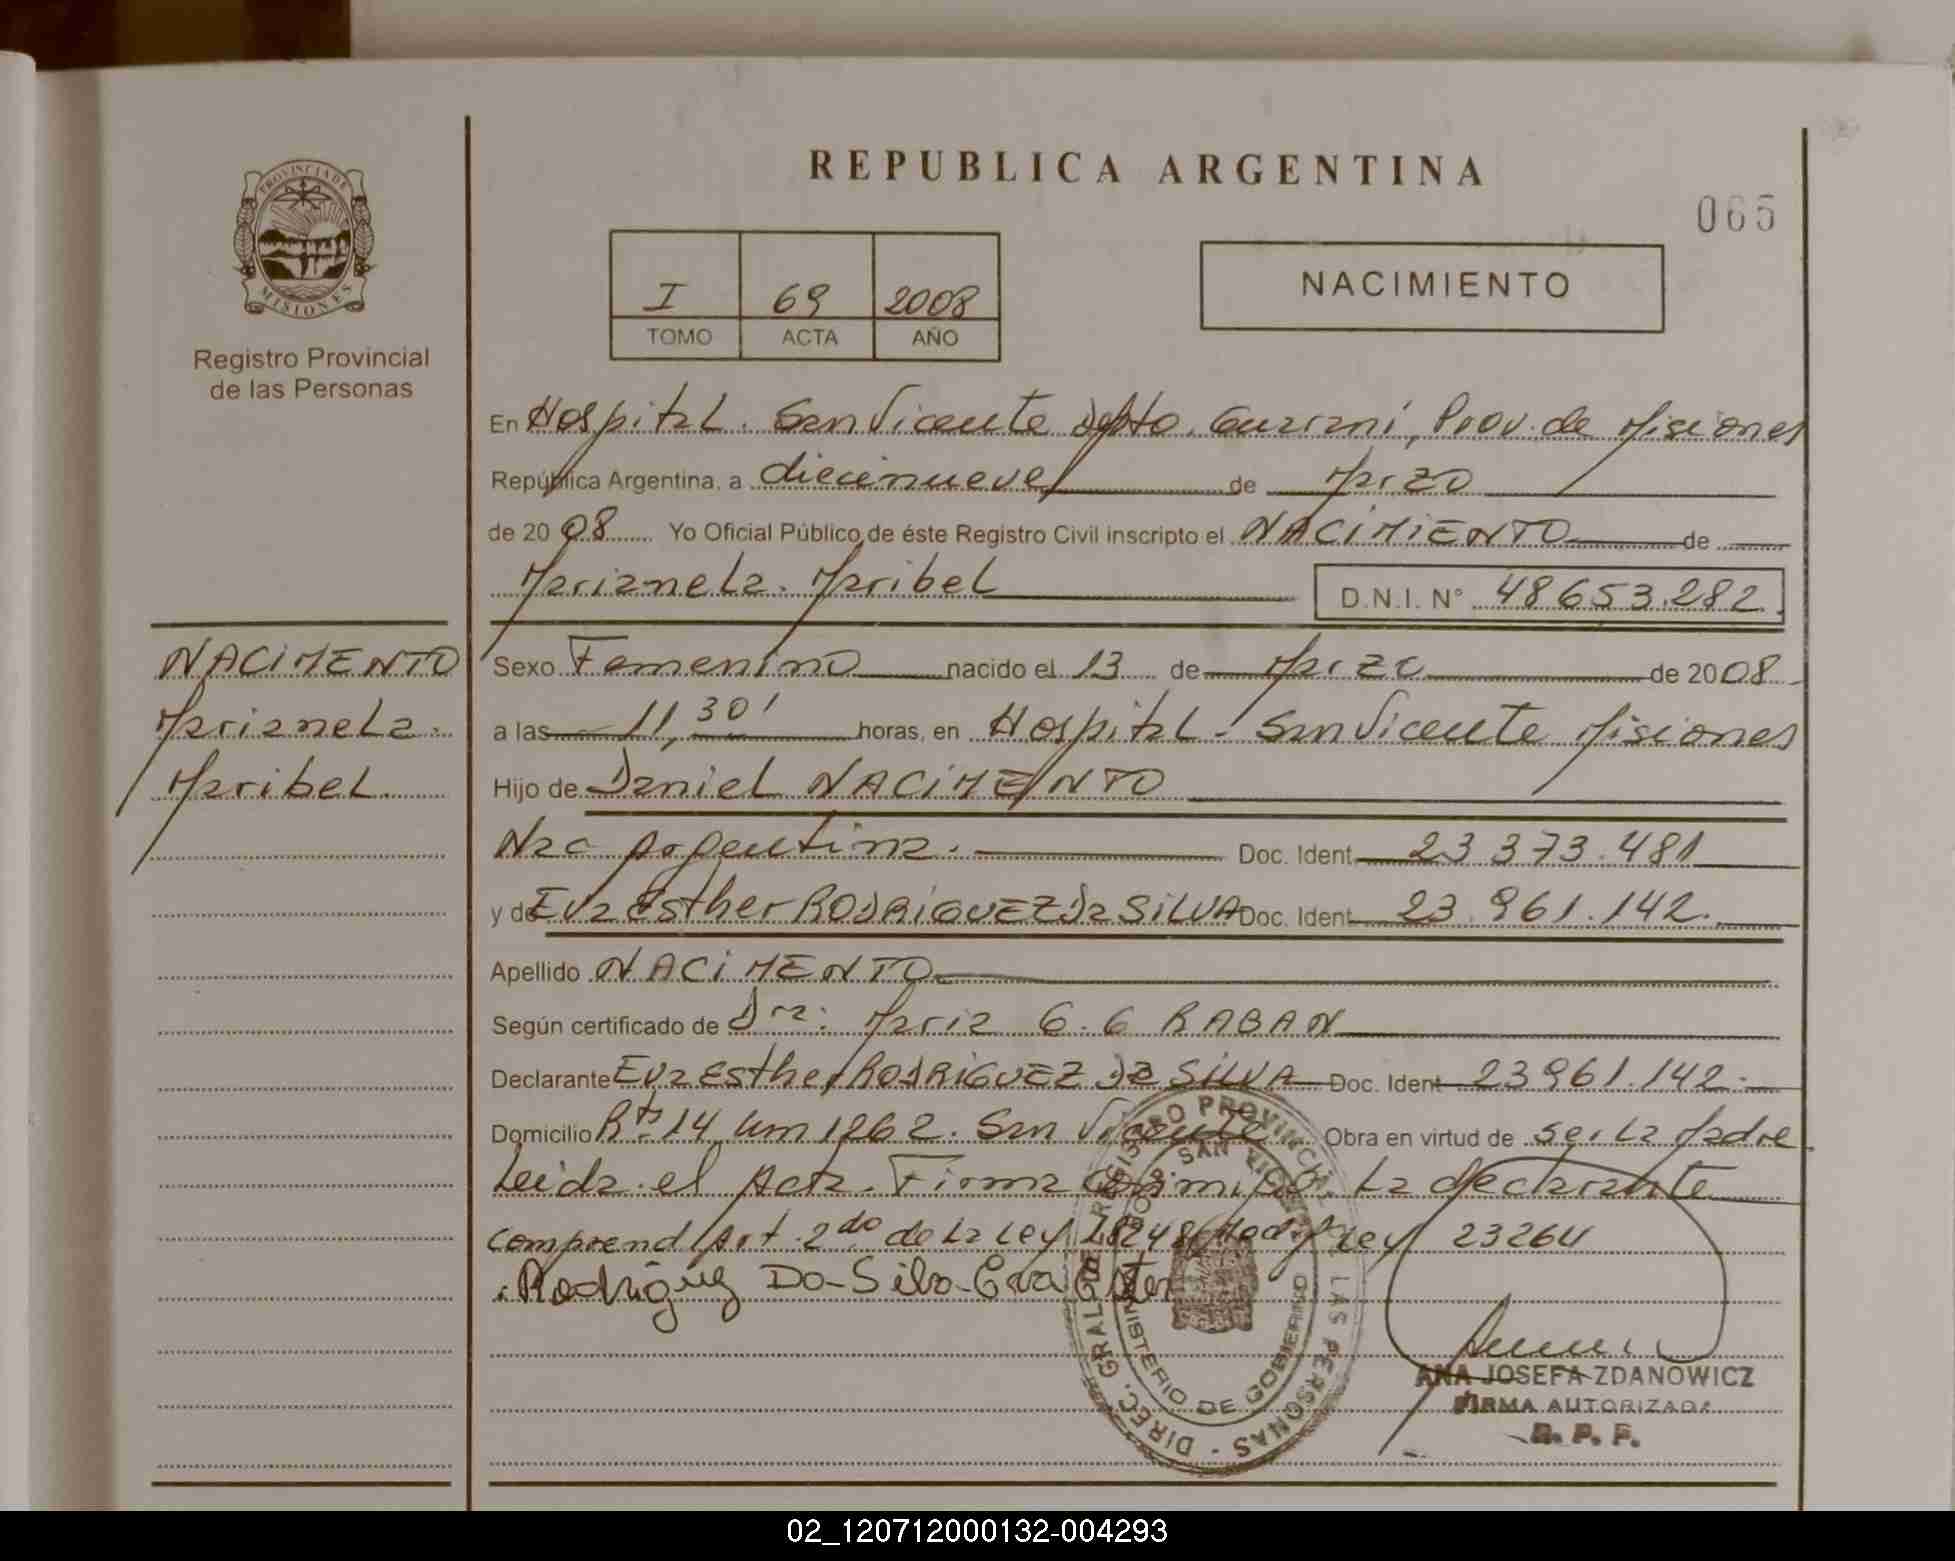 REPUBLICA ARGENTINA
065
PROVINCIA DE
MISIONES
Registro Provincial
de las Personas
I 69 2008
TOMO ACTA AÑO
NACIMIENTO
En Hospital. San Vicente Dpto. Guarani, Prov. de Misiones
República Argentina, a diecinueve de Marzo
de 2008 Yo Oficial Público de éste Registro Civil inscripto el NACIMIENTO de
Marianela. Maribel D.N.I. N° 48653.282.
NACIMENTO
Marianela.
Maribel.
Sexo Femenino nacido el 13 de Marzo de 2008
a las 11,30' horas, en Hospital - San Vicente Misiones
Hijo de Daniel NACIMENTO
Nac Argentina. Doc. Ident. 23 373.481
y de Eva Esther RODRIGUEZ Da SILVA Doc. Ident. 23.961.142.
Apellido NACIMENTO
Según certificado de Dra: Maria G.G RABAN
Declarante Eva Esther RODRIGUEZ Da SILVA Doc. Ident. 23961.142.
Domicilio Rta. 14 Km 1262. San Vicente Obra en virtud de ser La Madre
Leida el Acta. Firma conmigo. La declarante
comprend Art. 2do de La Ley 18248 Modif Ley 23264
Rodriguez Da-Silva-Eva Ester
DIREC. GRAL. DE REGISTRO PROVINCIAL DE LAS PERSONAS
SAN VICENTE
MINISTERIO DE GOBIERNO
ANA JOSEFA ZDANOWICZ
FIRMA AUTORIZADA
R. P. P.
02_120712000132-004293